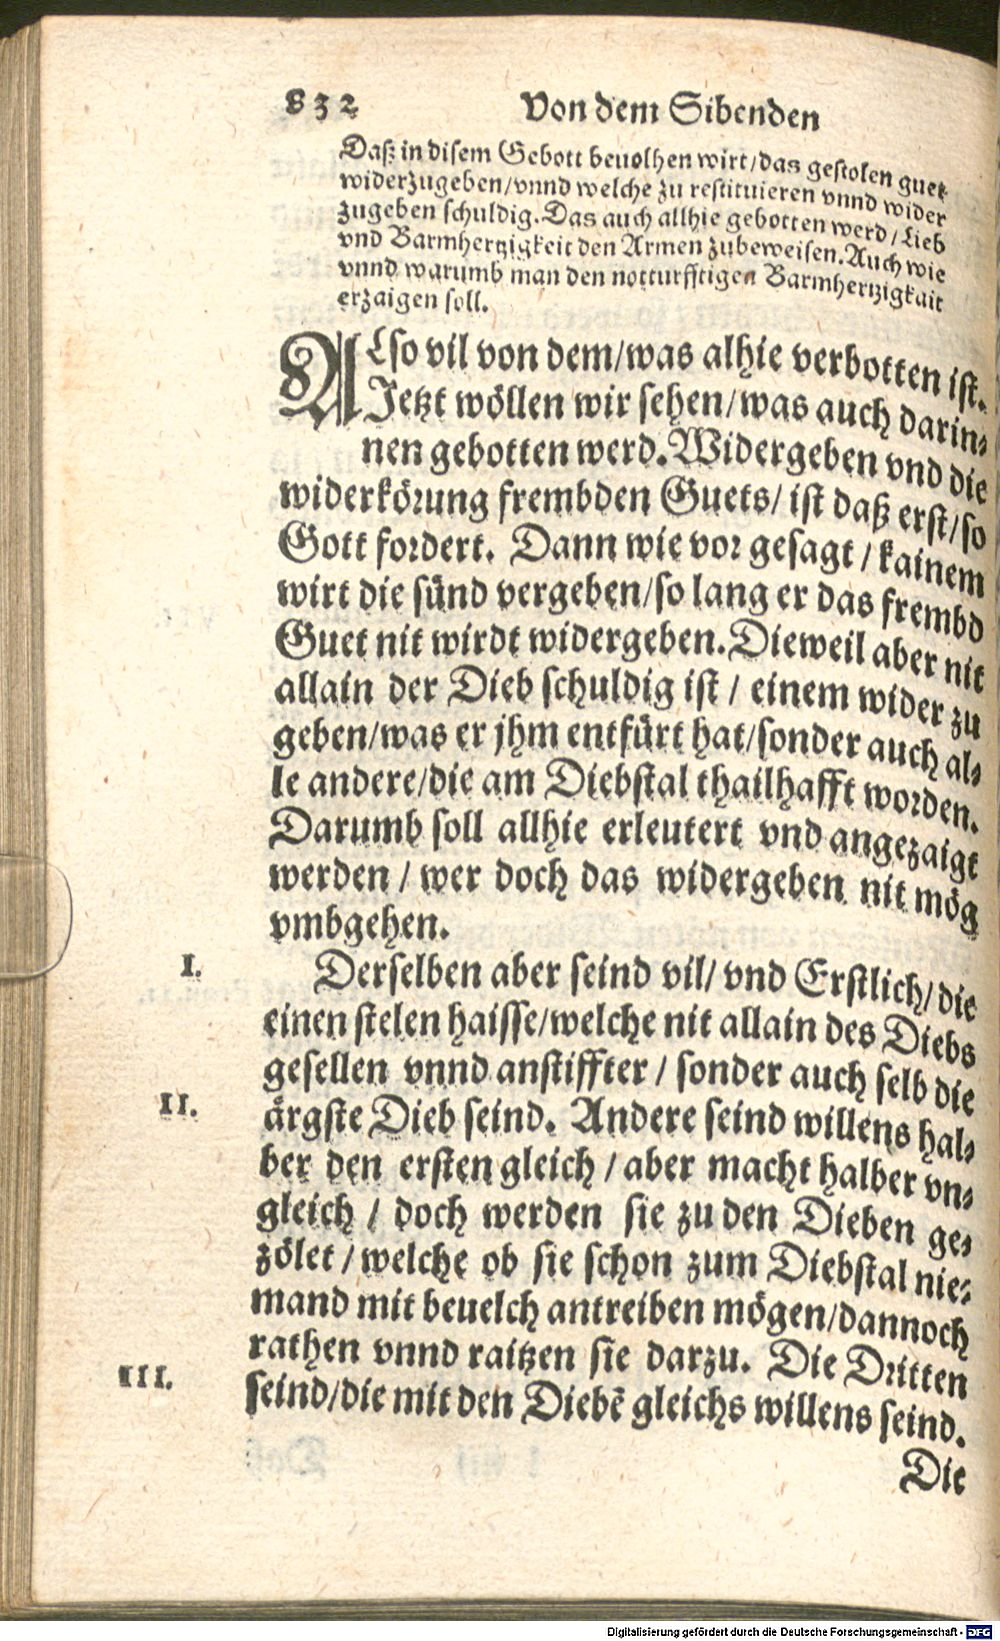 832 Von dem Sibenden
Daß in disem Gebott beuolhen wirt/das gestolen guet
widerzugeben/vnnd welche zu restituieren vnnd wider
zugeben schuldig. Das auch allhie gebotten werd/Lieb
vnd Barmhertzigkeit den Armen zubeweisen. Auch wie
vnnd warumb man den notturfftigen Barmhertzigkait
erzaigen soll.
ALso vil von dem/was alhie verbotten ist.
Jetzt wöllen wir sehen/was auch darin⸗
nen gebotten werd. Widergeben vnd die
widerkörung frembden Guets/ ist daß erst/so
Gott fordert. Dann wie vor gesagt / kainem
wirt die sünd vergeben/so lang er das frembd
Guet nit wirdt widergeben. Dieweil aber nit
allain der Dieb schuldig ist / einem wider zu
geben/was er jhm entfürt hat/sonder auch al⸗
le andere/die am Diebstal thailhafft worden.
Darumb soll allhie erleutert vnd angezaigt
werden / wer doch das widergeben nit mög
vmbgehen.
I. Derselben aber seind vil/ vnd Erstlich/die
einen stelen haisse/welche nit allain des Diebs
gesellen vnnd anstiffter / sonder auch selb die
II. ärgste Dieb seind. Andere seind willens hal⸗
ber den ersten gleich / aber macht halber vn⸗
gleich / doch werden sie zu den Dieben ge⸗
zölet / welche ob sie schon zum Diebstal nie⸗
mand mit beuelch antreiben mögen/dannoch
rathen vnnd raitzen sie darzu. Die Dritten
III. seind/die mit den Diebē gleichs willens seind.
Die
Digitalisierung gefördert durch die Deutsche Forschungsgemeinschaft - DFG